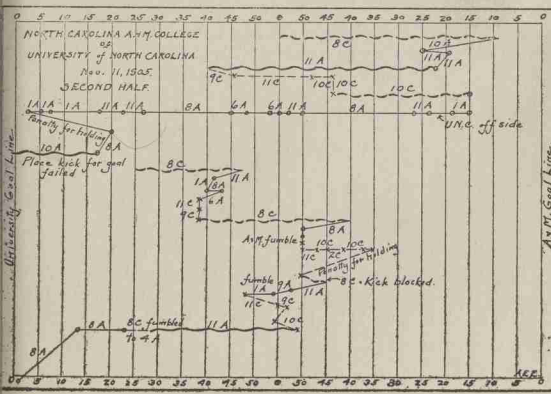 0 5 10 15 20 25 30 35 40 45 50 50 45 40 35 30 25 20 15 10 5 0
NORTH CAROLINA A.&M. COLLEGE
vs.
UNIVERSITY of NORTH CAROLINA
Nov. 11, 1905.
SECOND HALF.
8C
10A
11A 11A
11A
9C 11C 10C 10C
10C
1A 1A 1A 11A 11A 8A 6A 6A 11A 8A 11A 1A
U.N.C. off side
Penalty for holding
8A
10A
Place kick for goal failed
8C
11A
1A
8A
6A
11C
9C
8C
8A
A&M. fumble
10C 10C
11C 2C
Penalty for holding
fumble 9A
1A 11A
8C - Kick blocked.
11C 9C
10C
8A 8C. fumbled 11A
to 4A
8A
University Goal Line
A&M Goal Line
0 5 10 15 20 25 30 35 40 45 50 50 45 40 35 30 25 20 15 10 5 0